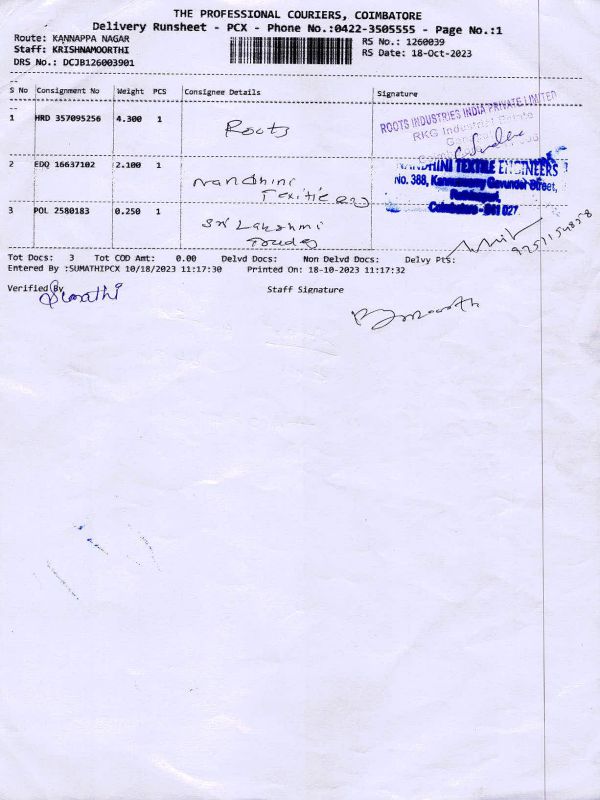 THE PROFESSIONAL COURIERS, COIMBATORE
Delivery Runsheet - PCX - Phone No.:0422-3505555 - Page No.:1
Route: KANNAPPA NAGAR
RS No.: 1260039
Staff: KRISHNAMOORTHI
RS Date: 18-Oct-2023
DRS No.: DCJB126003901
S No Consignment No Weight PCS Consignee Details Signature
1 HRD 357095256 4.300 1 Roots
ROOTS INDUSTRIES INDIA PRIVATE LIMITED
RKG Industrial Estate
2 EDQ 16637102 2.100 1 Nandhini
NANDHINI TEXTILE ENGINEERS
No. 388, Kannusamy Gounder Street,
Coimbatore - 641 027.
3 POL 2580183 0.250 1 Sri Lakshmi
Tot Docs: 3 Tot COD Amt: 0.00 Delvd Docs: Non Delvd Docs: Delvy Pts:
Entered By :SUMATHIPCX 10/18/2023 11:17:30 Printed On: 18-10-2023 11:17:32
Verified By Staff Signature
Sumathi